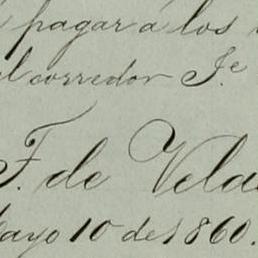 pagar á los
corredor J.e
F. de Vela
ayo 10 de 1860.